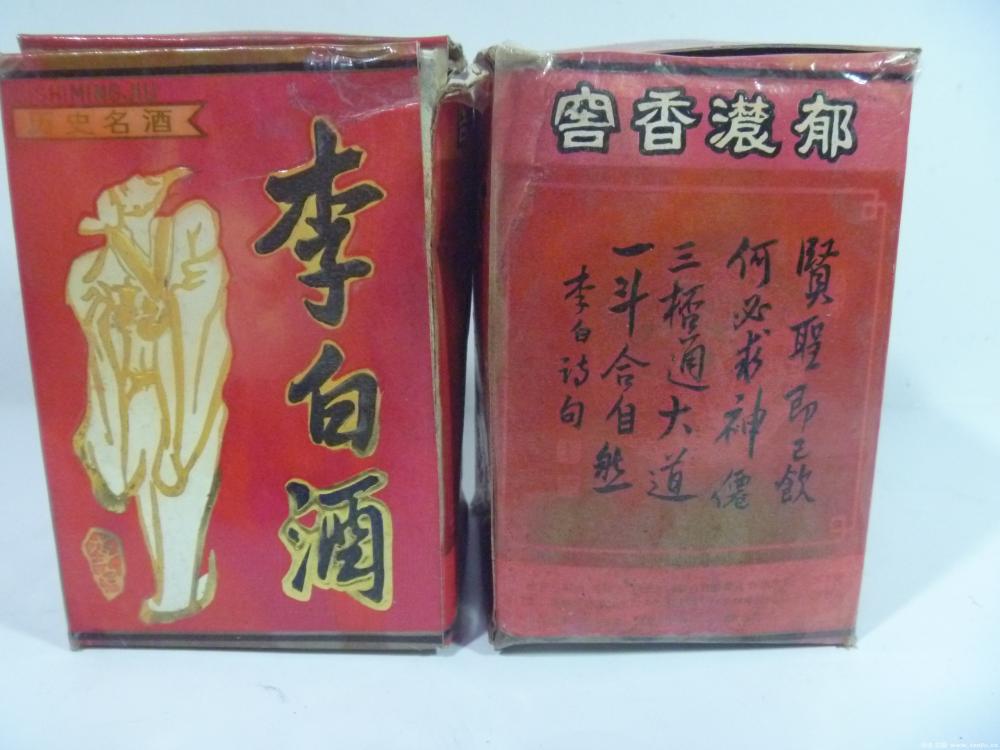 SHIMING JIU
历史名酒
李白酒
窖香濃郁
賢聖即已飲
何必求神僊
三桮通大道
一斗合自然
李白诗句